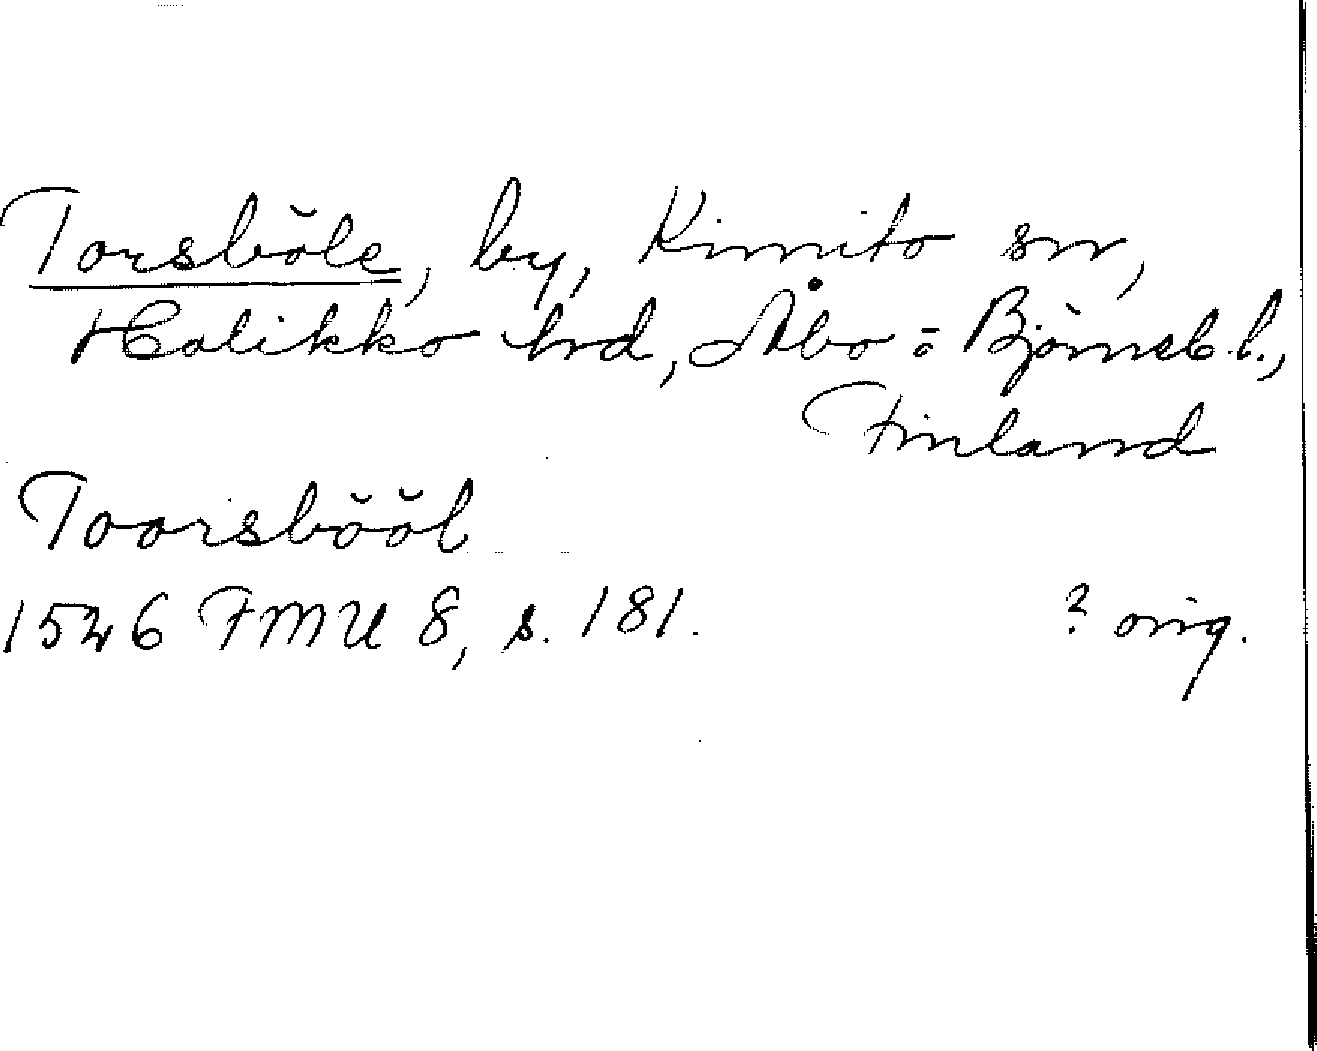 Torsböle, by, Kimito sn,
Halikko hrd, Åbo o Björneb. l.,
Finland
Toorsbööl
1526 FMU 8, s. 181. ? orig.